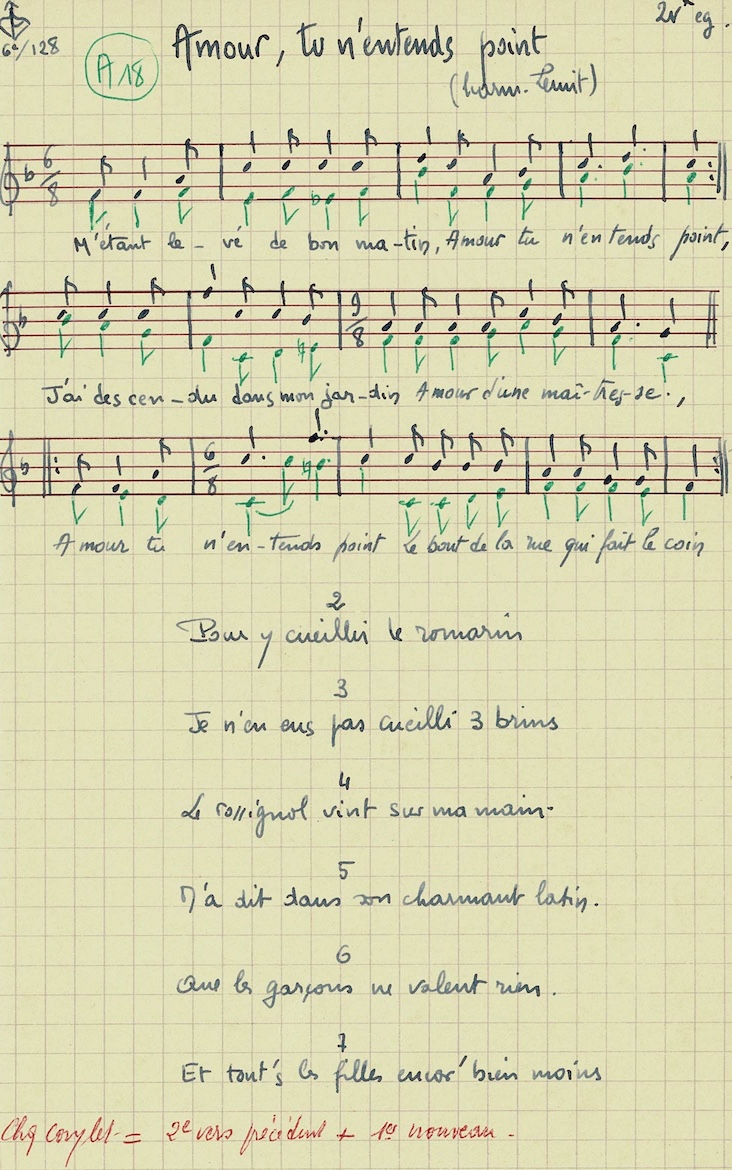 2vˣ eg.
6ᵃ/128
A18
Amour, tu n'entends point
(harm. Lemit)
6/8
M'étant le-vé de bon ma-tin, Amour tu n'entends point,
9/8
J'ai des cen-du dans mon jar-din Amour d'une maî-tres-se.,
6/8
Amour tu n'en-tends point Le bout de la rue qui fait le coin
2
Pour y cueillir le romarin
3
Je n'en eus pas cueilli 3 brins
4
Le rossignol vint sur ma main.
5
M'a dit dans son charmant latin.
6
Que les garçons ne valent rien.
7
Et tout's les filles encor' bien moins
Chq couplet = 2ᵉ vers précédent + 1er nouveau.